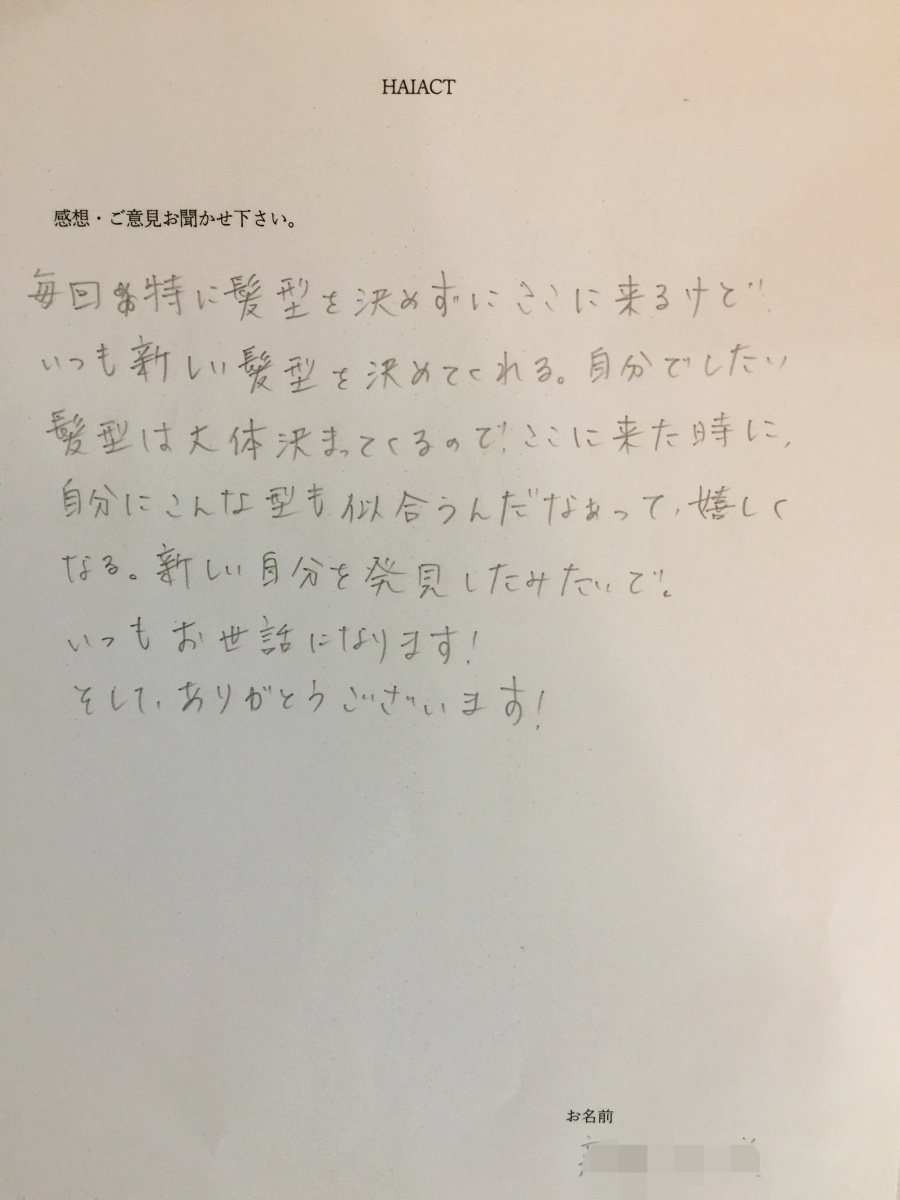 HAIACT
感想・ご意見お聞かせ下さい。
毎回特に髪型を決めずにここに来るけど
いつも新しい髪型を決めてくれる。自分でしたい
髪型は大体決まってくるので、ここに来た時に、
自分にこんな型も似合うんだなぁって、嬉しく
なる。新しい自分を発見したみたいで。
いつもお世話になります!
そして、ありがとうございます!
お名前